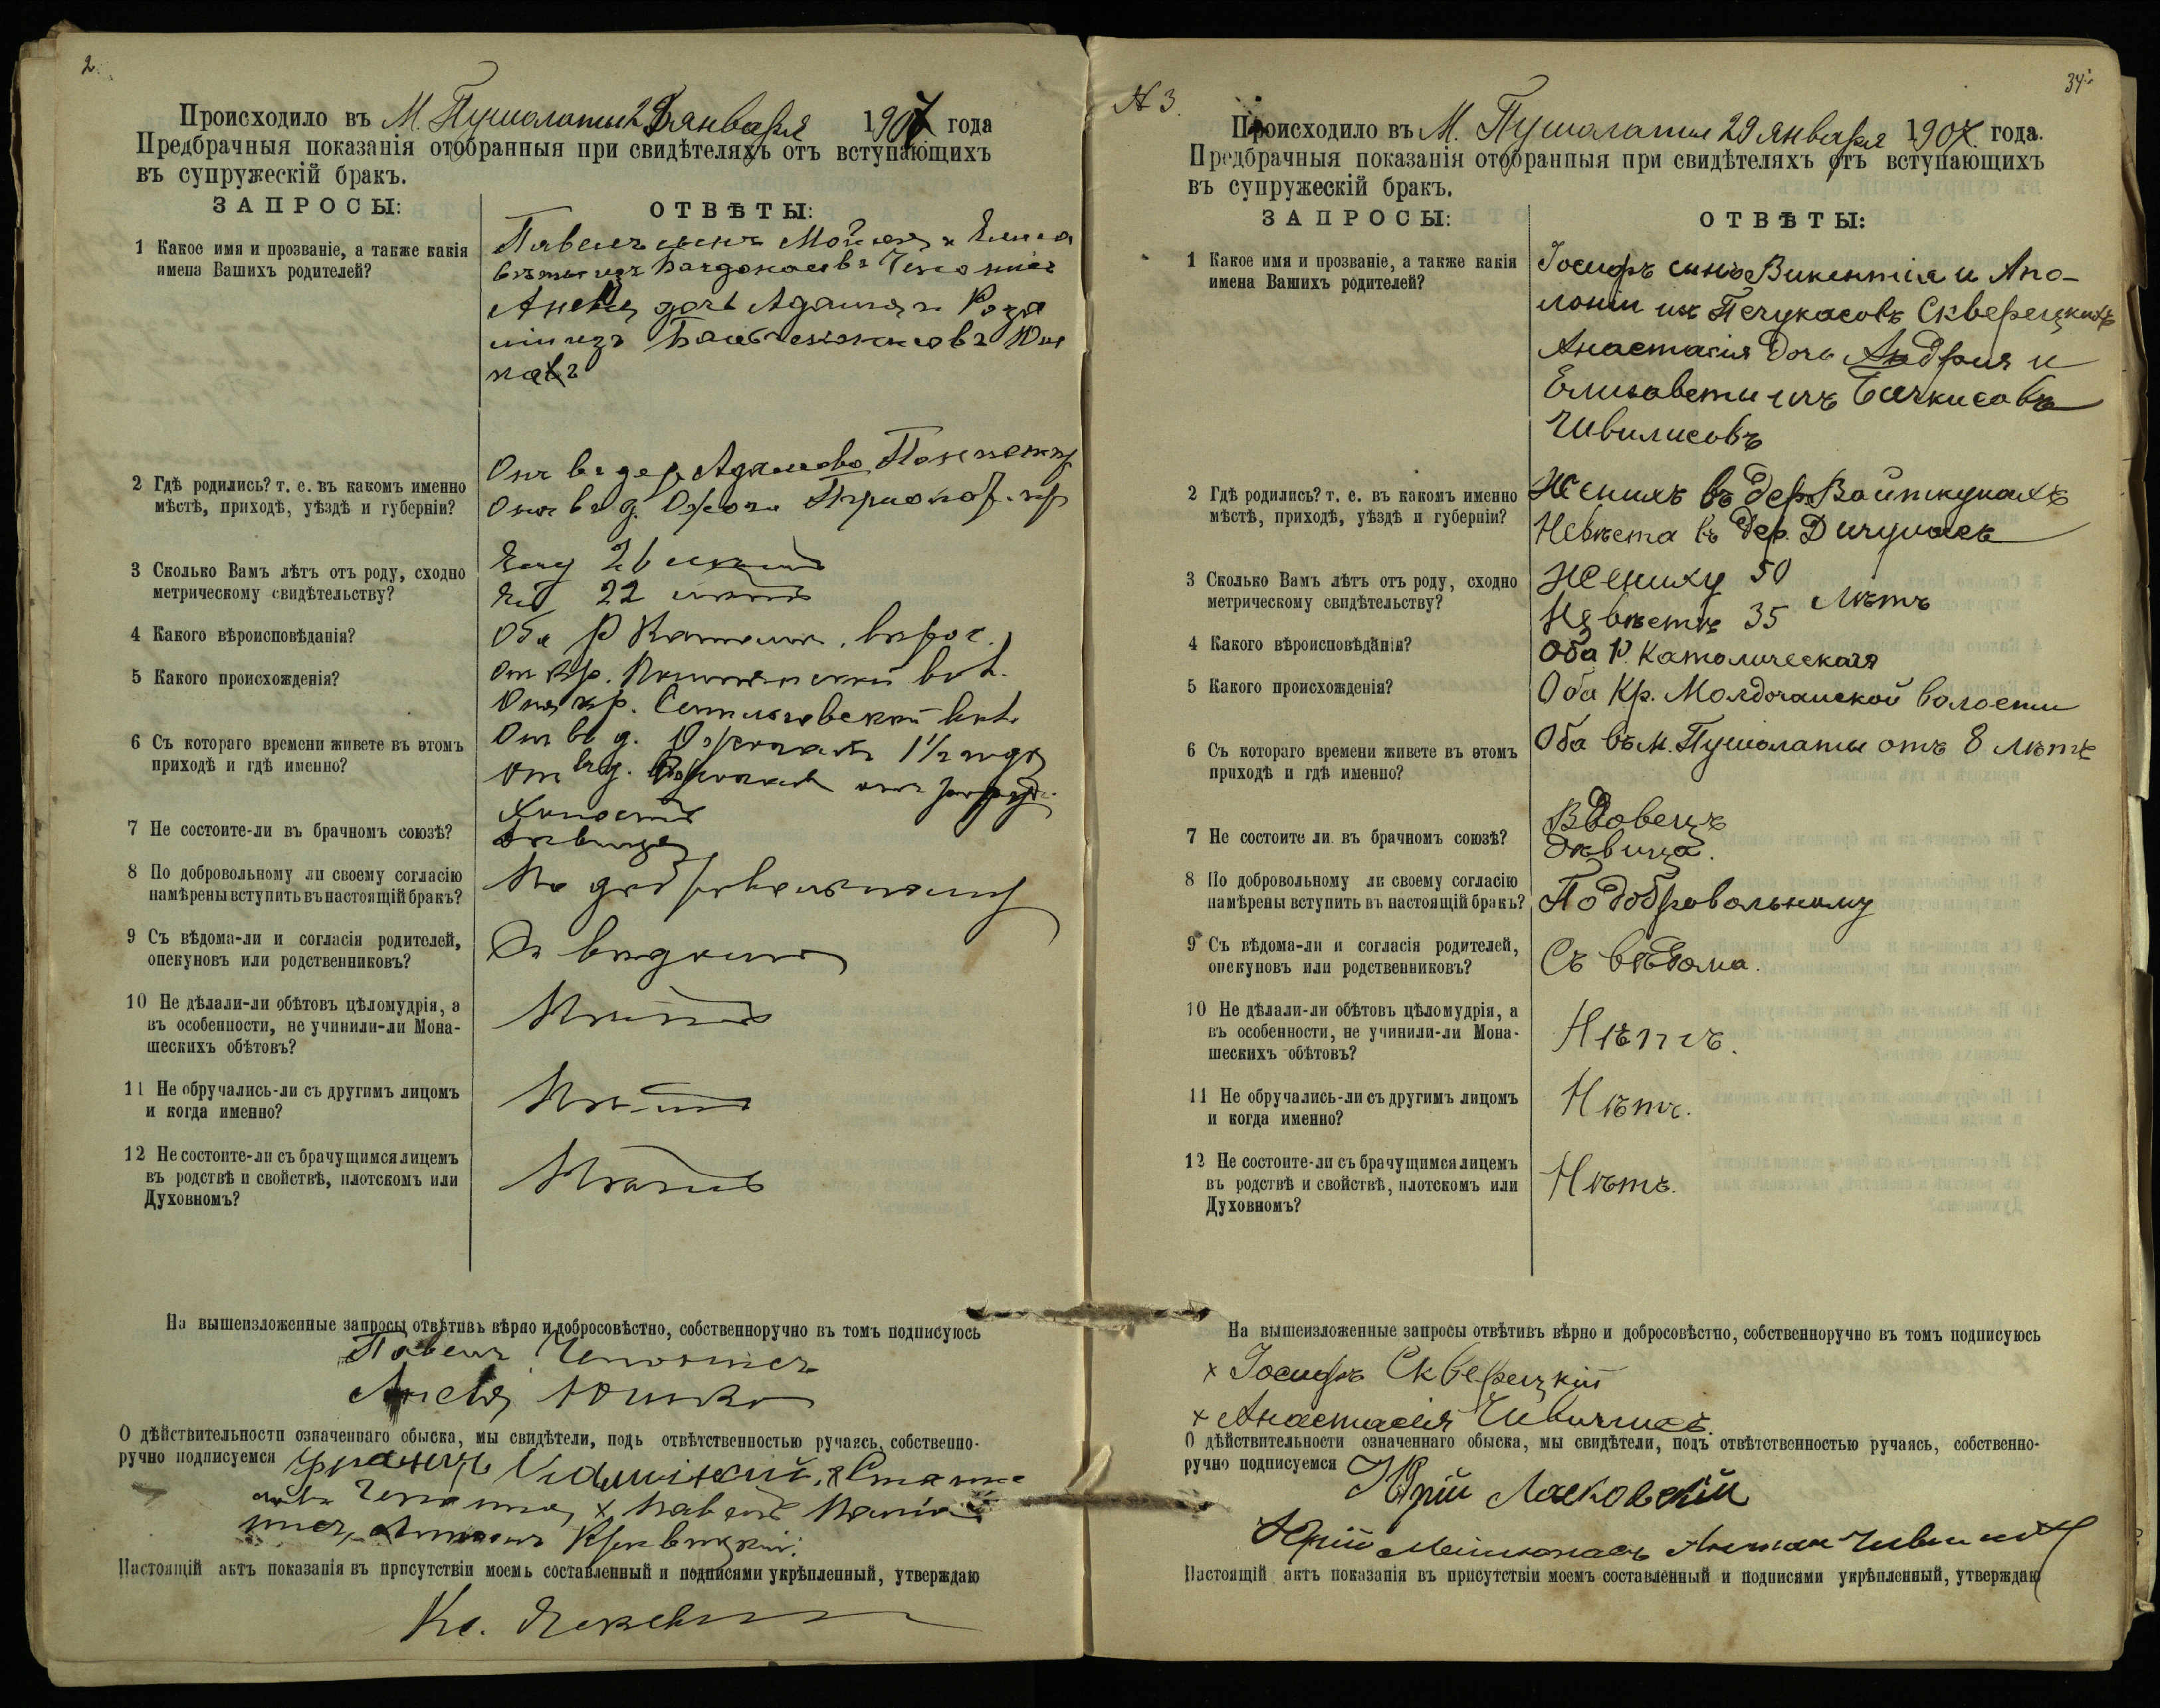 2
Происходило въ М. Пушолаты 28 января 1907 года
Предбрачныя показанія отобранныя при свидѣтеляхъ отъ вступающихъ
въ супружескій бракъ.
ЗАПРОСЫ:
ОТВѢТЫ:
1 Какое имя и прозваніе, а также какія
имена Вашихъ родителей?
Павелъ сынъ
дочь Адама и
2 Гдѣ родились? т. е. въ какомъ именно
мѣстѣ, приходѣ, уѣздѣ и губерніи?
Онъ въ дер. Адамово
Она въ д.
3 Сколько Вамъ лѣтъ отъ роду, сходно
метрическому свидѣтельству?
Ему 26 лѣтъ
Ей 22 лѣтъ
4 Какого вѣроисповѣданія?
Оба Р Католич. вѣрос.
5 Какого происхожденія?
Он кр. вол.
Она кр. вол.
6 Съ котораго времени живете въ этомъ
приходѣ и гдѣ именно?
Он въ д. 1½ года
въ д.
7 Не состоите-ли въ брачномъ союзѣ?
Холостъ
Дѣвица
8 По добровольному ли своему согласію
намѣрены вступить въ настоящій бракъ?
По добровольному
9 Съ вѣдома-ли и согласія родителей,
опекуновъ или родственниковъ?
Съ вѣдома
10 Не дѣлали-ли обѣтовъ цѣломудрія, а
въ особенности, не учинили-ли Мона-
шескихъ обѣтовъ?
Нѣтъ
11 Не обручались-ли съ другимъ лицомъ
и когда именно?
Нѣтъ
12 Не состоите-ли съ брачущимся лицемъ
въ родствѣ и свойствѣ, плотскомъ или
Духовномъ?
Нѣтъ
На вышеизложенные запросы отвѣтивъ вѣрно и добросовѣстно, собственноручно въ томъ подписуюсь
Павелъ
О дѣйствительности означеннаго обыска, мы свидѣтели, подъ отвѣтственностью ручаясь, собственно-
ручно подписуемся Францъ
Настоящій актъ показанія въ присутствіи моемъ составленный и подписями укрѣпленный, утверждаю
Кс.
№ 3.
34
Происходило въ М. Пушолаты 29 Января 1907. года.
Предбрачныя показанія отобранныя при свидѣтеляхъ отъ вступающихъ
въ супружескій бракъ.
ЗАПРОСЫ:
ОТВѢТЫ:
1 Какое имя и прозваніе, а также какія
имена Вашихъ родителей?
Іосифъ сынъ Викентія и Апо-
лоніи изъ Печукасовъ Скверецкихъ
Анастасія дочь Андрія и
Елизаветы изъ Бачкисовъ
Чивилисовъ
2 Гдѣ родились? т. е. въ какомъ именно
мѣстѣ, приходѣ, уѣздѣ и губерніи?
Женихъ въ дер. Войткунахъ
Невѣста въ дер.
3 Сколько Вамъ лѣтъ отъ роду, сходно
метрическому свидѣтельству?
Жениху 50
Невѣстѣ 35 Лѣтъ
4 Какого вѣроисповѣданія?
Оба Р. Католическая
5 Какого происхожденія?
Оба Кр. волости
6 Съ котораго времени живете въ этомъ
приходѣ и гдѣ именно?
Оба въ М. Пушолаты отъ 8 лѣтъ
7 Не состоите ли въ брачномъ союзѣ?
Вдовецъ
Дѣвица.
8 По добровольному ли своему согласію
намѣрены вступить въ настоящій бракъ?
По добровольному
9 Съ вѣдома-ли и согласія родителей,
опекуновъ или родственниковъ?
Съ вѣдома.
10 Не дѣлали-ли обѣтовъ цѣломудрія, а
въ особенности, не учинили-ли Мона-
шескихъ обѣтовъ?
Нѣтъ.
11 Не обручались-ли съ другимъ лицомъ
и когда именно?
Нѣтъ.
12 Не состоите-ли съ брачущимся лицемъ
въ родствѣ и свойствѣ, плотскомъ или
Духовномъ?
Нѣтъ.
На вышеизложенные запросы отвѣтивъ вѣрно и добросовѣстно, собственноручно въ томъ подписуюсь
х Іосифъ Скверецкій
х Анастасія
О дѣйствительности означеннаго обыска, мы свидѣтели, подъ отвѣтственностью ручаясь, собственно-
ручно подписуемся
Юрій Ласковскій
Юрій
Настоящій актъ показанія въ присутствіи моемъ составленный и подписями укрѣпленный, утверждаю